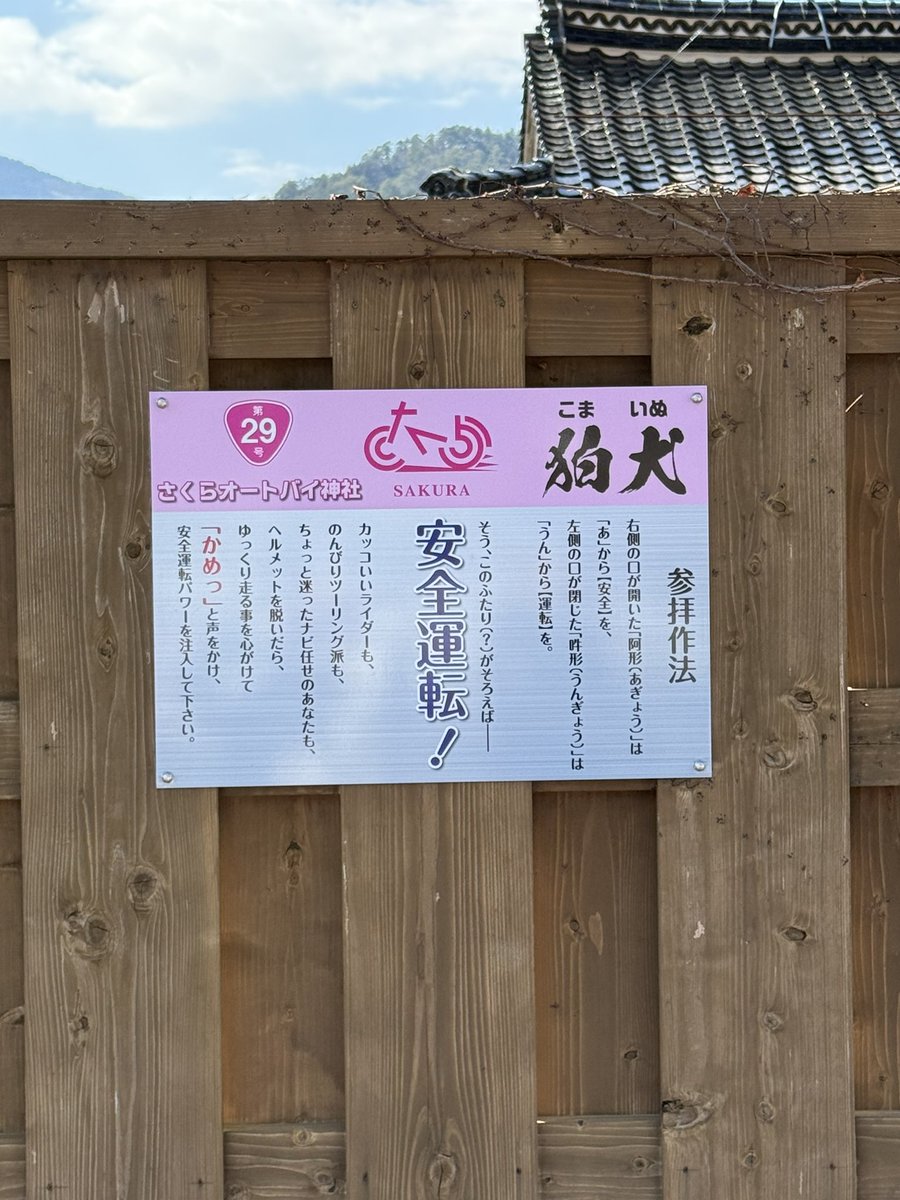 第
29
号
さくらオートバイ神社
さくら
SAKURA
こま いぬ
狛犬
参拝作法
右側の口が開いた「阿形（あぎょう）」は
「あ」から【安全】を、
左側の口が閉じた「吽形（うんぎょう）」は
「うん」から【運転】を。
そう、このふたり（？）がそろえば――
安全運転！
カッコいいライダーも、
のんびりツーリング派も、
ちょっと迷ったナビ任せのあなたも、
ヘルメットを脱いだら、
ゆっくり走る事を心がけて
「かめっ」と声をかけ、
安全運転パワーを注入して下さい。